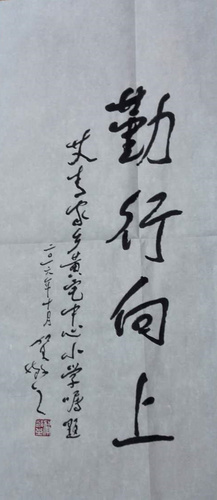 勤行向上
艾青家乡黄宅中心小学嘱题
二〇一六年十月